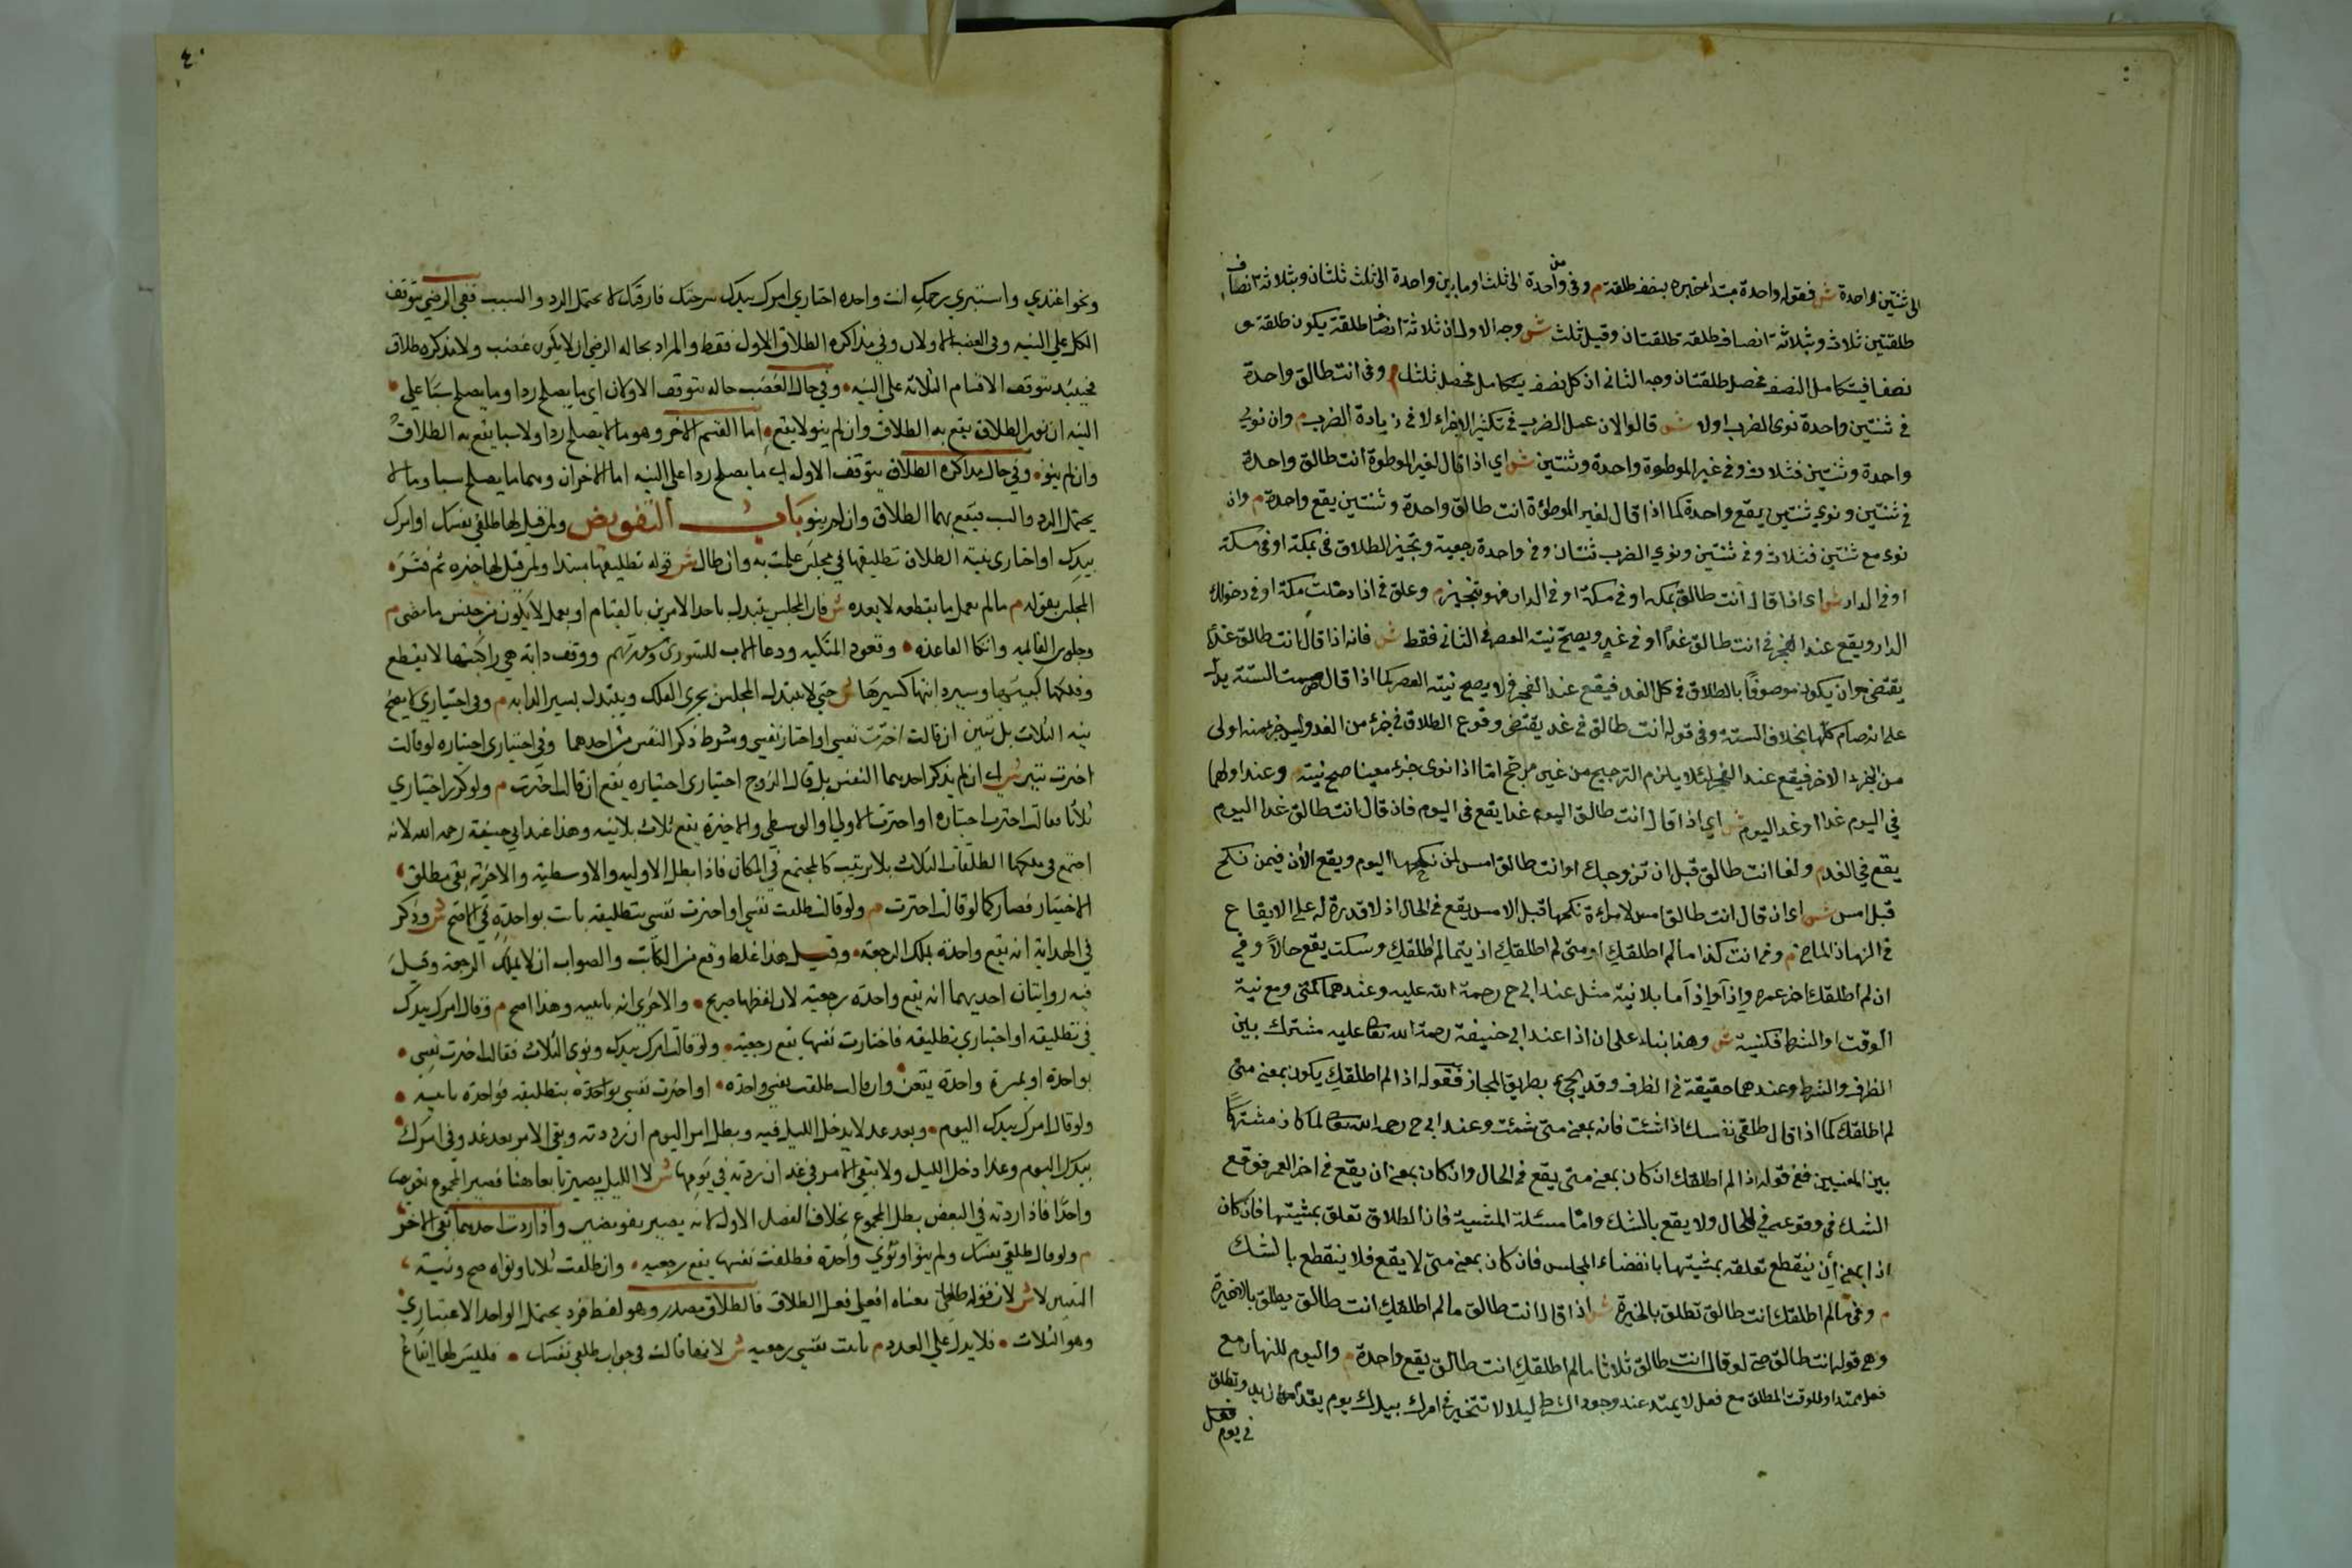 الى ثنتين واحدة ش فقوله واحدة مبتدا خبره بنصف طلقة م وفى من واحدة الى ثلث او ما بين واحدة الى ثلث ثلثان وبثلاثة انصاف
طلقتين ثلاث وبثلاثة انصاف طلقة طلقتان وقيل ثلث ش وجه الاول ان ثلاثة انصاف طلقة يكون طلقة و
نصفا فيتكامل النصف فحصل طلقتان وجه الثانى ان كل نصف يتكامل فحصل ثلث م وفى انت طالق واحدة
في ثنتين واحدة نوى الضرب اولا ش قالوا لان عمل الضرب في تكثير الاجزاء لا في زيادة المضرب م وان نوى
واحدة وثنتين فثلاث وفى غير الموطوة واحدة وثنتين ش اي اذا قال لغير الموطوة انت طالق واحدة
في ثنتين ونوي ثنتين يقع واحدة كما اذا قال لغير الموطئة انت طالق واحدة وثنتين يقع واحدة م وان
نوى مع ثنتين فثلاث وفى ثنتين ونوي الضرب ثنتان وفى واحدة رجعية وتنجيز الطلاق فى بمكة او فى مكة
او فى الدار ش اى اذا قال انت طالق بمكه او فى مكة او فى الدار فهو تنجيز م وعلق فى اذا دخلت مكة او فى دخولك
الدار ويقع عند الفجر فى انت طالق غدا او فى غد ويصح نية العصر فى الثانى فقط ش فانه اذا قال انت طالق غدا
يقتضى ان يكون موصوفا بالطلاق في كل الغد فيقع عند الفجر فلا يصح نية العصر كما اذا قال صمت السنة يدل
على انه صام كلها بخلاف السنة وفى قوله انت طالق في غد يقتضى وقوع الطلاق في جزء من الغد وليس جزء منه اولى
من الجزء الاخر فيقع عند الفجر لئلا يلزم الترجيح من غير مرجح اما اذا نوى جزء معينا صح نيته م وعند اولهما
في اليوم غدا او غدا اليوم ش اي اذا قال انت طالق اليوم غدا يقع فى اليوم فاذ قال انت طالق غدا اليوم
يقع في الغد م ولغا انت طالق قبل ان تزوجك او انت طالق امس لمن نكحها اليوم ويقع الآن فيمن نكح
قبل امس ش اى ان قال انت طالق امس لامراة نكحها قبل الامس يقع فى الحال اذ لا قدرة له على الايقاع
فى الزمان الماضى م وفى انت كذا ما لم اطلقك او متى لم اطلقك اذ يتما لم اطلقك وسكت يقع حالا وفي
ان لم اطلقك اخر عمره واذا واذا ما بلا نية مثل عند ابى ح رحمة الله عليه وعندهما كمتى ومع نية
الوقت او الشرط فكنية ش وهذا بناء على ان اذا عند ابى حنيفة رحمة الله تعا عليه مشترك بين
الظرف والشرط وعندهما حقيقة فى الظرف وقد يجىء بطريق المجاز فقوله اذا لم اطلقك يكون بمعنى متى
لم اطلقك كما اذا قال طلقى نفسك اذا شئت فانه بمعنى متى شئت وعند ابى ح رحمه الله تعا لما كان مشتركا
بين المعنيين ففى قوله اذا لم اطلقك ان كان بمعنى متى يقع فى الحال وان كان بمعنى ان يقع في اخر العمر فوقع
الشك فى وقوعه في الحال ولا يقع بالشك واما مسئلة المشية فان الطلاق تعلق بمشيتها فان كان
اذا بمعنى ان ينقطع تعلقه بمشيتها بانقضاء المجلس فان كان بمعنى متى لا يقع فلا ينقطع بالشك
م وفى ما لم اطلقك انت طالق تطلق بالاخيرة ش اذا قال انت طالق ما لم اطلقك انت طالق يطلق بالاخيرة
وهى قوله انت طالق حتى لو قال انت طالق ثلاثا ما لم اطلقك انت طالق يقع واحدة م واليوم للنهار مع
فعل ممتد وللوقت المطلق مع فعل لا يمتد عند وجود الشرط ليلا لا تتخير فى امرك بيدك يوم يقدم زيد وتطلق
في يوم
٤٠
ونحو اعتدي واستبري رحمك انت واحده اختاري امرك بيدك سرحتك فارقتك لا يحتمل الرد والسب ففى الرضى يتوقف
الكل على النيه وفى الغضب الاولان وفي مذاكرة الطلاق الاول فقط والمراد بحاله الرضى ان لا يكون غضب ولا مذكره طلاق
فحينئذ يتوقف الاقسام الثلاثة على النيه وفي حال الغضب حاله يتوقف الاولان اي ما يصلح ردا وما يصلح سبا على
النيه ان نوى الطلاق يقع به الطلاق وان لم ينو لا يقع اما القسم الاخر وهو ما لا يصلح ردا ولا سبا يقع به الطلاق
وان لم ينو وفي حال مذاكرة الطلاق يتوقف الاول اي ما يصلح ردا على النيه اما الاخران وهما ما يصلح سبا وما لا
يحتمل الرد والسب فيقع بهما الطلاق وان لم ينو باب التفويض ولمن قيل لها طلقي نفسك او امرك
بيدك او اختارى بنية الطلاق تطليقها في مجلس علمت به وان طال ش قوله تطليقها مبتدا ولمن قيل لها خبره ثم فسر
المجلس بقوله م ما لم يعمل ما يقطعه لا بعده ش فان المجلس يتبدل باحد الامرين بالقيام او بعمل لا يكون من جنس ما مضى م
وجلوس القائمه واتكا القاعده وقعود المتكيه ودعا الاب للشورى وشهود تشهدهم ووقف دابة هي راكبتها لا يقطع
وفلكها كبيتها وسير دابتها كسيرها ش حتى لا يتبدل المجلس بجرى الفلك ويتبدل بسير الدابه م وفى اختياري لا يصح
نيه الثلاث بل تبين ان قالت اخترت نفسي او اختار نفسي وشرط ذكر النفس من احدهما وفى اختياري اختياره لو قالت
اخترت تبين ش اي ان لم يذكر احدهما النفس بل قال الزوج اختياري اختياره يقع ان قالت اخترت م ولو كرر اختياري
ثلاثا فقالت اخترت اختيارة او اخترت الاولى او الوسطى والاخيرة يقع ثلاث بلا نيه وهذا عند ابي حنيفة رحمه الله لانه
اجتمع في ملكها الطلقات الثلاث بلا ترتيب كالمجتمع في المكان فاذا بطل الاوليه والاوسطيه والاخريه بقى مطلق
الاختيار فصار كما لو قالت اخترت م ولو قالت طلقت نفسي او اخترت نفسي بتطليقه بانت بواحدة في الاصح ش وذكر
في الهداية انه يقع واحدة يملك الرجعة وقيل هذا غلط وقع من الكاتب والصواب انه لا يملك الرجعة وقيل
فيه روايتان احديهما انه يقع واحدة رجعية لان لفظها صريح والاخرى انه باينه وهذا اصح م وفى امرك بيدك
في تطليقه او اختياري تطليقه فاختارت نفسها يقع رجعية ولو قال امرك بيدك ونوى الثلاث فقالت اخترت نفسي
بواحدة او بمرة واحدة يقعن وان قالت طلقت نفسي واحده او اخترت نفسي بواحدة بتطليقه فواحدة باينه
ولو قال امرك بيدك اليوم وبعد غد لا يدخل الليل فيه وبطل امر اليوم ان ردته وبقى الامر بعد غد وفى امرك
بيدك اليوم وغدا دخل الليل ولا يبقى الامر في غد ان ردته في يومها ش لا الليل يصير تابعا هنا فصير المجموع تفويضا
واحدا فاذا ردته في البعض بطل المجموع بخلاف الفصل الاول لانه يصير تفويضين واذا ردت احديهما بقى الاخر
م ولو قال طلقي نفسك ولم ينو او نوي واحدة فطلقت نفسها يقع رجعيه وان طلقت ثلاثا ونواه صح ونية
الثنتين لا ش لان قوله طلقي معناه افعلى فعل الطلاق فالطلاق مصدر وهو لفظ فرد يحتمل الواحد الاعتباري
وهو الثلاث فلا يدل على العدد م بانت نفسي رجعيه ش لانها قالت فى جواب طلقي نفسك فليس لها ايقاع